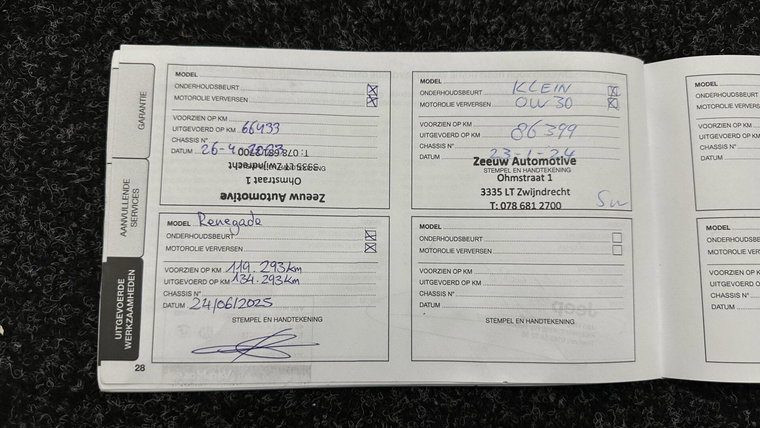 GARANTIE
AANVULLENDE SERVICES
UITGEVOERDE WERKZAAMHEDEN
MODEL
ONDERHOUDSBEURT
MOTOROLIE VERVERSEN
VOORZIEN OP KM
UITGEVOERD OP KM 66433
CHASSIS N°
DATUM 26-4-2023
T: 078 681 2700
STEMPEL EN HANDTEKENING
3335 LT Zwijndrecht
Ohmstraat 1
Zeeuw Automotive
MODEL
ONDERHOUDSBEURT KLEIN
MOTOROLIE VERVERSEN OW 30
VOORZIEN OP KM
UITGEVOERD OP KM 86399
CHASSIS N°
DATUM 23-1-24
Zeeuw Automotive
STEMPEL EN HANDTEKENING
Ohmstraat 1
3335 LT Zwijndrecht
T: 078 681 2700
MODEL Renegade
ONDERHOUDSBEURT
MOTOROLIE VERVERSEN
VOORZIEN OP KM 119.293km
UITGEVOERD OP KM 134.293km
CHASSIS N°
DATUM 24/06/2025
STEMPEL EN HANDTEKENING
MODEL
ONDERHOUDSBEURT
MOTOROLIE VERVERSEN
VOORZIEN OP KM
UITGEVOERD OP KM
CHASSIS N°
DATUM
STEMPEL EN HANDTEKENING
28
MODEL
ONDERHOUDSB
MOTOROLIE VER
VOORZIEN OP K
UITGEVOERD OP
CHASSIS N°
DATUM
MODEL
ONDERHOUDSBE
MOTOROLIE VERV
VOORZIEN OP KM
UITGEVOERD OP
CHASSIS N°
DATUM